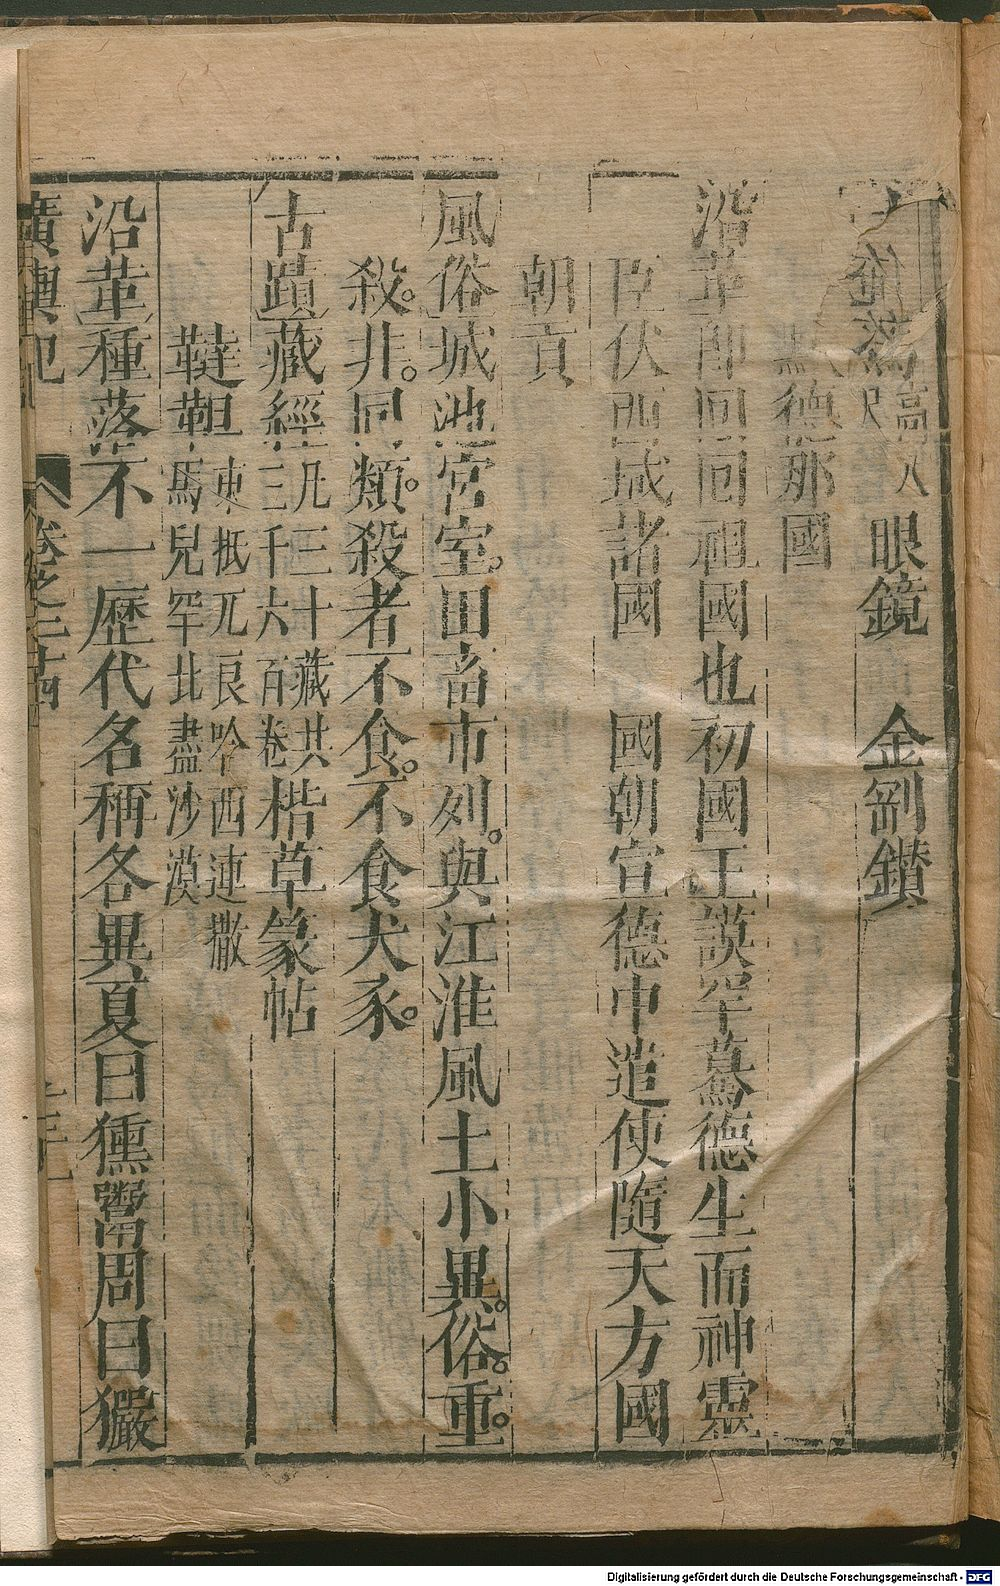 眼鏡 金剛鑽
默德那國
沿革即囘囘祖國也初國王謨罕驀德生而神靈
臣伏西域諸國 國朝宣德中遣使隨天方國
朝貢
風俗城池宮室。田畜市列。與江淮風土小異。俗。重。
殺。非。同類。殺者不食。不食犬豕。
古蹟藏經凡三十藏共三千六百卷楷草篆帖
韃靼東抵兀良哈西連撒馬兒罕北盡沙漠
沿革種落不一歷代名稱各異夏曰獯鬻周曰玁
廣輿記 卷之二十四
Digitalisierung gefördert durch die Deutsche Forschungsgemeinschaft - DFG